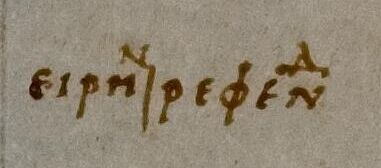 ειρην|ρεφενδ